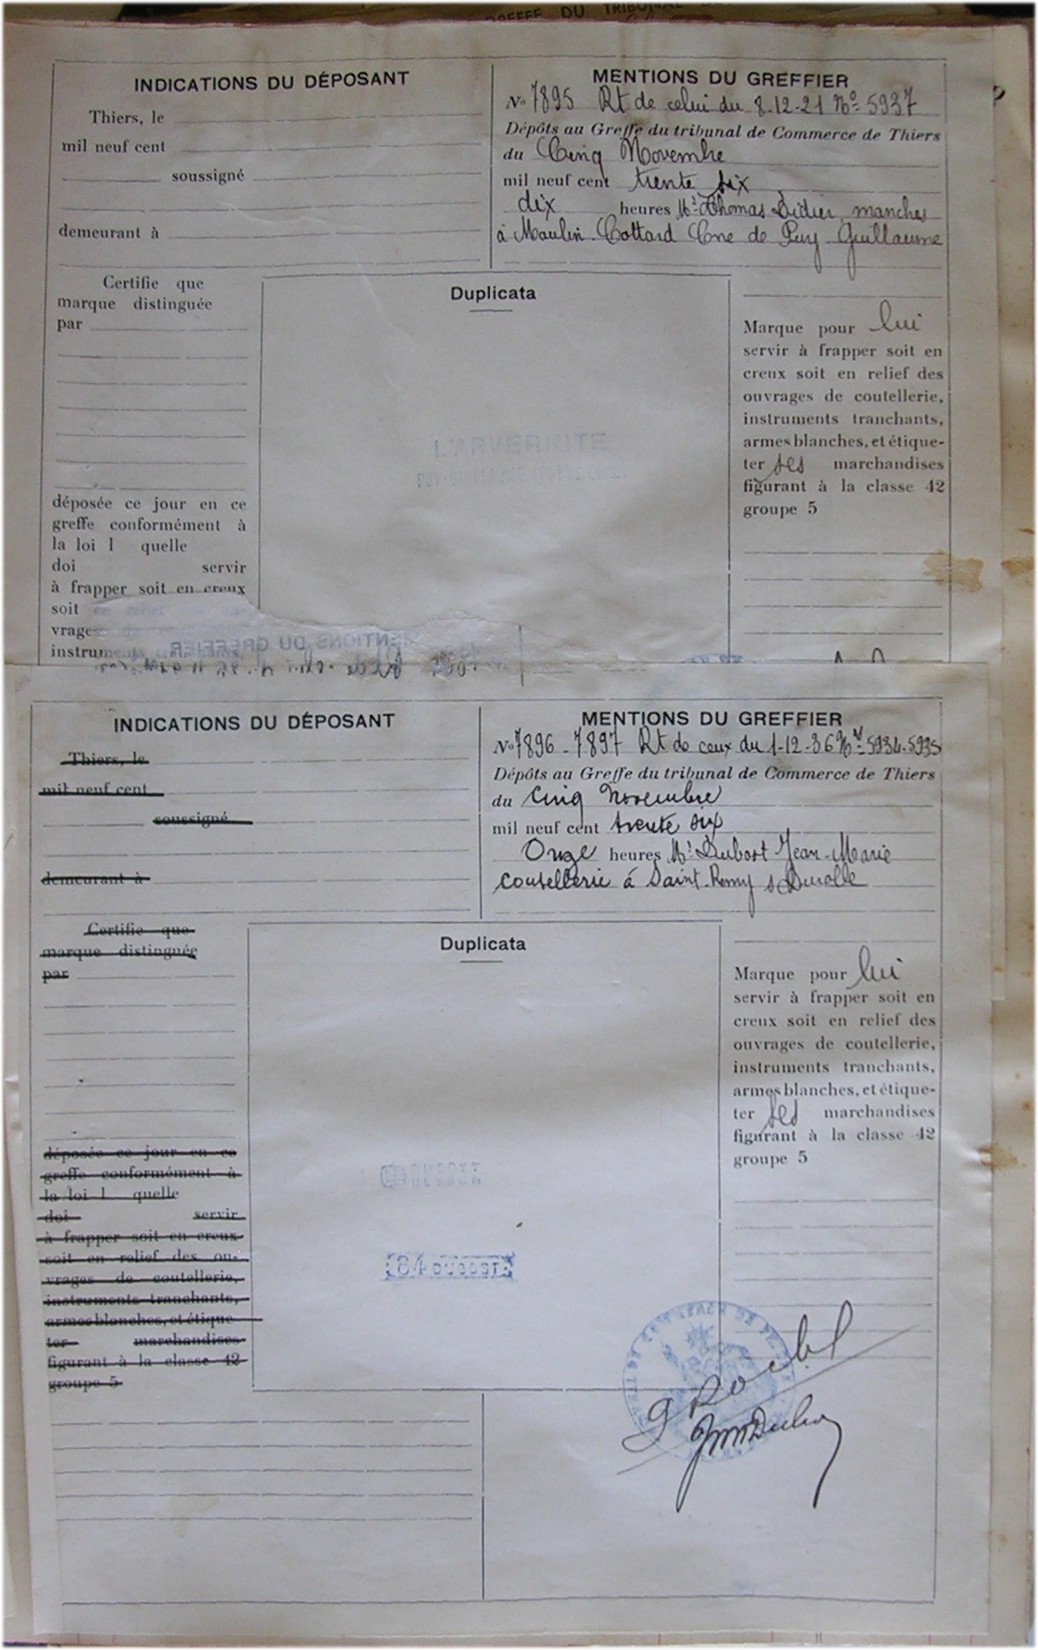 GREFFE DU TRIBUNAL
INDICATIONS DU DÉPOSANT
Thiers, le
mil neuf cent
soussigné
demeurant à
Certifie que
marque distinguée
par
déposée ce jour en ce
greffe conformément à
la loi l quelle
doi servir
à frapper soit en creux
soit en relief
vrages
instrum
MENTIONS DU GREFFIER
No 7895 Rt de celui du 8-12-21 No 5937
Dépôts au Greffe du tribunal de Commerce de Thiers
du Cinq Novembre
mil neuf cent trente six
dix heures Mr Thomas Didier, manches
à Moulin Cottard Cne de Puy Guillaume
Duplicata
L'ARVERKITE
Marque pour lui
servir à frapper soit en
creux soit en relief des
ouvrages de coutellerie,
instruments tranchants,
armes blanches, et étique-
ter ses marchandises
figurant à la classe 42
groupe 5
MENTIONS DU GREFFIER
INDICATIONS DU DÉPOSANT
Thiers, le
mil neuf cent
soussigné
demeurant à
Certifie que
marque distinguée
par
déposée ce jour en ce
greffe conformément à
la loi l quelle
doi servir
à frapper soit en creux
soit en relief des ou-
vrages de coutellerie,
instruments tranchants,
armes blanches, et étique
ter marchandises
figurant à la classe 42
groupe 5
MENTIONS DU GREFFIER
No 7896-7897 Rt de ceux du 1-12-36 Nos 5934-5935
Dépôts au Greffe du tribunal de Commerce de Thiers
du Cinq Novembre
mil neuf cent trente six
Onze heures Mr Dubost Jean-Marie
coutellerie à Saint-Remy s Durolle
Duplicata
84 DUBOST
Marque pour lui
servir à frapper soit en
creux soit en relief des
ouvrages de coutellerie,
instruments tranchants,
armes blanches, et étique-
ter ses marchandises
figurant à la classe 42
groupe 5